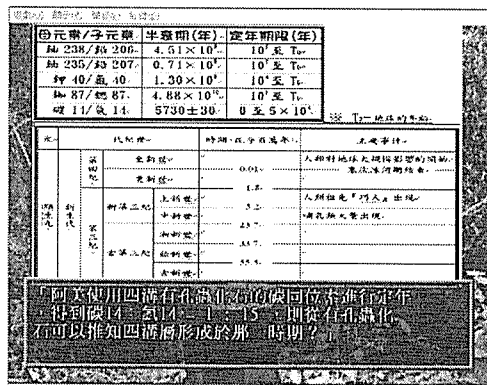 母元素/子元素 半衰期(年) 定年期限(年)
鈾 238/鉛 206 4.51×10⁹ 10⁷至 T₀
鈾 235/鉛 207 0.71×10⁹ 10⁷至 T₀
鉀 40/氬 40 1.30×10⁹ 10⁵至 T₀
銣 87/鍶 87 4.88×10¹⁰ 10⁷至 T₀
碳 14/氮 14 5730±30 0 至 5×10⁴
※ T₀=地球的年齡
元 代紀世 時間:在分百萬年 主要事件
顯生元 新生代 第四紀 全新世 人類對地球大規模影響的開始
0.01 末次冰河期結束
更新世
1.8
第三紀 新第三紀 上新世 人類祖先『巧人』出現
5.2
中新世 哺乳類大量出現
23.7
古第三紀 漸新世
33.7
始新世
55.5
古新世
「阿美使用四溝有孔蟲化石的碳同位素進行定年
,得到碳14:氮14=1:15,則從有孔蟲化
石可以推知四溝層形成於那一時期?」